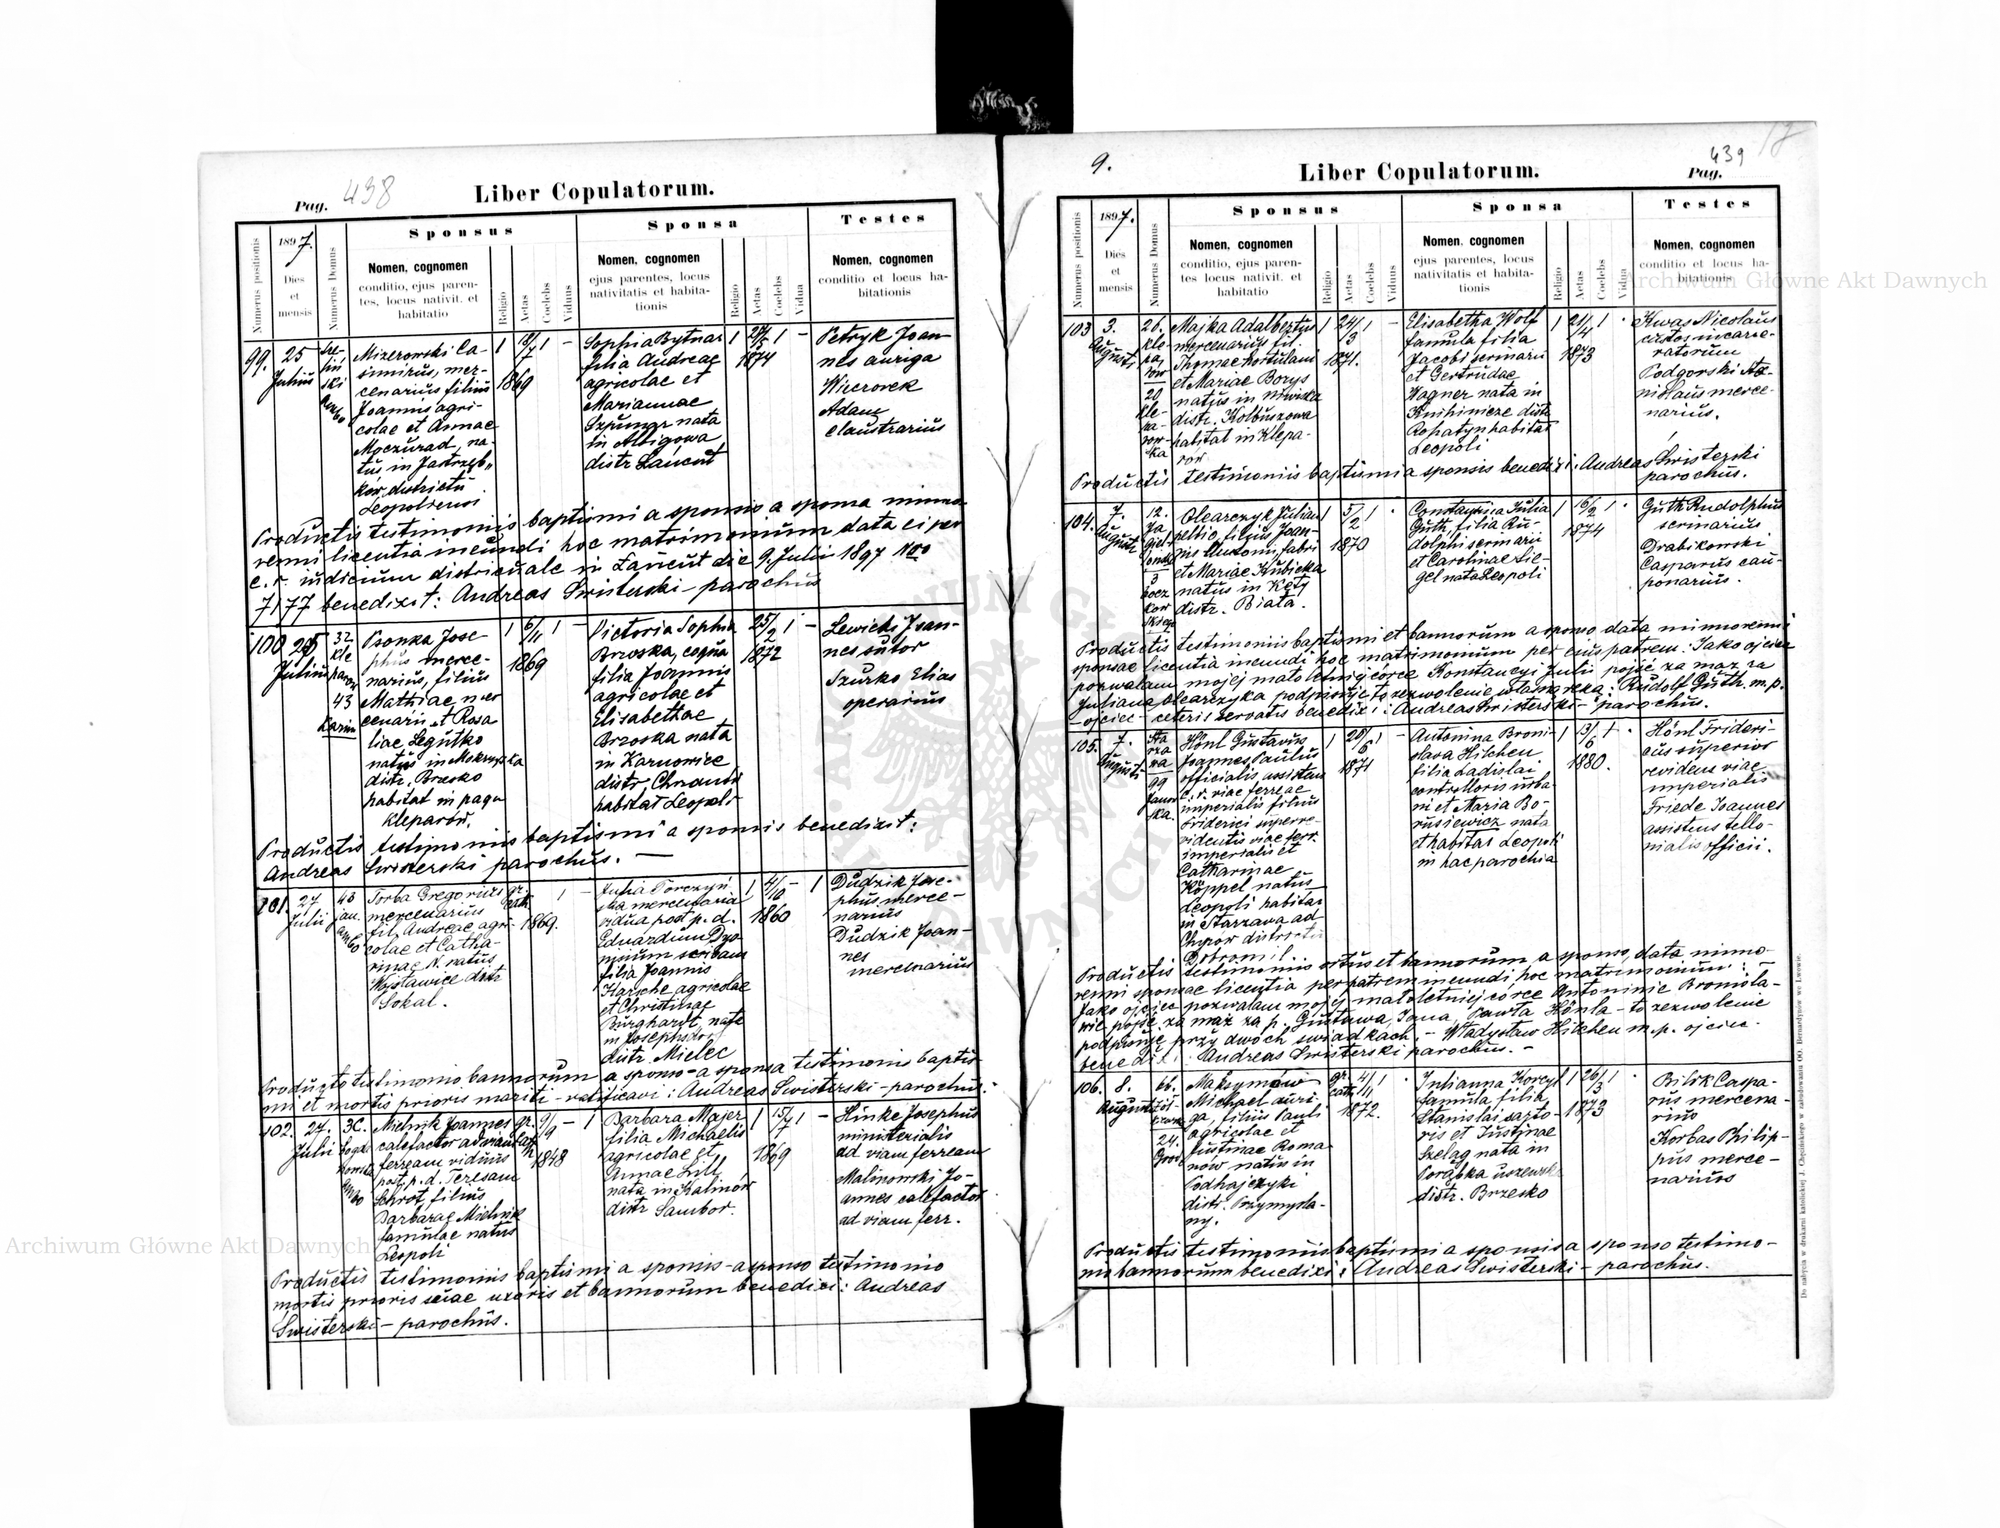 Pag. 438 Liber Copulatorum.
Numerus positionis
1897.
Dies
et
mensis
Numerus Domus
Sponsus
Nomen, cognomen
conditio, ejus paren-
tes, locus nativit. et
habitatio
Religio
Aetas
Coelebs
Viduus
Sponsa
Nomen, cognomen
ejus parentes, locus
nativitatis et habita-
tionis
Religio
Aetas
Coelebs
Vidua
Testes
Nomen, cognomen
conditio et locus ha-
bitationis
99.
25
Julius
Mizerowski Ca-
simirus, mer-
cenarius filius
Joannis agri-
colae et Annae
Moczurad, na-
tus in Jastrzęb-
ków, districtu
1
18/7
1869
1
–
Sophia Bytnar
filia Andreae
agricolae et
Mariannae
Szpunar nata
in Albigowa
distr Łańcut
1
1874
1
–
Petryk Joan
nes auriga
Wieczorek
Adam
claustrarius
Productis testimoniis baptismi a sponsis a sponsa minno-
renni licentia ineundi hoc matrimonium data ei per
c. r. iudicium districuale in Łańcut die 9. Julii 1897 No
7177 benedixit: Andreas Swisterski – parochus
100
Julius
32
Kle
parow
43
Psonka Jose
phus merce-
narius, filius
Mathiae mer
cenarii et Rosa
liae Legutko
natus in Mokrzyska
distr. Brzesko
habitat in pagu
Kleparów.
1
6/11
1869
1
–
Victoria Sophia
Brzoska, coqua
filia Joannis
agricolae et
Elisabethae
Brzoska nata
in Karnowice
distr. Chrzanów
habitat Leopoli
1
25/2
1872
1
–
Lewicki Joan-
nes sutor
Szurko Elias
operarius
Productis testimoniis baptismi a sponsis benedixit:
Andreas Swisterski parochus. —
101.
27
Julii
43
Jan.
Torba Gregorius
mercenarius
fil. Andreae agri-
colae et Catha-
rinae N. natus
Wojsławice distr
Sokal.
gr.
cath.
1869.
1
–
Julia Porczyń
ska mercenaria
vidua post p. d.
Eduardum Dyo-
nisium scribam
filia Joannis
Harsche agricolae
et Christinae
Burghardt, nata
in Josephsdorf
distr. Mielec
1
4/10
1860
–
1
Dudzik Jose-
phus merce-
narius
Dudzik Joan-
nes
mercenarius
Producto testimonio bannorum a sponso – a sponsa testimoniis baptis
mi et mortis prioris mariti – ratificavi: Andreas Swisterski – parochus.
102.
27.
Julii
Melnik Joannes
calefactor ad viam
ferream viduus
post p. d. Teresam
Schrot, filius
Barbarae Mielnik
famulae natus
Leopoli
gr.
9/9
1848
–
1
Barbara Majer
filia Michaelis
agricolae et
Annae Lill
nata in Kalinów
distr Sambor.
1
15/7
1869
1
–
Hinke Josephus
ministerialis
ad viam ferream
Malinowski Jo-
annes calefactor
ad viam ferr.
Productis testimoniis baptismi a sponsis – a sponso testimonio
mortis prioris suae uxoris et bannorum benedixi: Andreas
Swisterski – parochus.
9. Liber Copulatorum. Pag. 439
Numerus positionis
1897.
Dies
et
mensis
Numerus Domus
Sponsus
Nomen, cognomen
conditio, ejus paren-
tes locus nativit. et
habitatio
Religio
Aetas
Coelebs
Viduus
Sponsa
Nomen, cognomen
ejus parentes, locus
nativitatis et habita-
tionis
Religio
Aetas
Coelebs
Vidua
Testes
Nomen, cognomen
conditio et locus ha-
bitationis
103
3.
Augusti
20.
Kle-
pa-
row
20
Kle-
pa-
row-
ska
Majka Adalbertus
mercenarius fil.
Thomae hortulani
et Mariae Borys
natus in Niwiska
distr. Kolbuszowa
habitat in Klepa-
rów
1
24/3
1871.
1
–
Elisabetha Wolf
famula filia
Jacobi scrinarii
et Gertrudae
Wagner nata in
Knihinicze distr
Rohatyn habitat
Leopoli
1
21/4
1873
1
Kwas Nicolaus
custos incarce-
ratorum
Podgorski Sta-
nislaus merce-
narius.
Productis testimoniis baptismi a sponsis benedixi: Andreas Swisterski
parochus.
104.
7.
Augusti
12.
Olearczyk Julian
pellio, filius Joan-
nis Antonii fabri
et Mariae Kubicka
natus in Kęty
distr. Biała.
1
5/2
1870
1
Constantina Julia
Guth, filia Ru-
dolphi scrinarii
et Carolinae Sie-
gel nata Leopoli
1
16/2
1874
1
Guth Rudolphus
scrinarius
Drabikowski
Casparus cau-
ponarius.
Productis testimoniis baptismi et bannorum a sponso, data minnorenni
sponsae licentia ineundi hoc matrimonium per eius patrem: Jako ojciec
pozwalam mojej małoletniej córce Konstancyi Julii pojść za mąż za
Juliana Olearczyka podpisuję to zezwolenie własną ręką: Rudolf Guth. m. p.
– ojciec – ceteris servatis benedixi: Andreas Swisterski – parochus.
105.
7.
Augusti
Sta
rza
wa
99
Hönl Gustavus
Joannes Paulus
officialis, assistens
c. r. viae ferreae
imperialis filius
Friderici superre-
videntis viae ferr.
imperialis et
Catharinae
Köppel natus
Leopoli habitat
in Starzawa ad
Chyrów districtu
Dobromil.
1
20/6
1871
1
–
Antonina Broni-
slava Hilchen
filia Ladislai
controlloris urba-
ni et Maria Bo-
rusiewicz nata
et habitat Leopoli
in hac parochia
1
13/6
1880.
1
Hönl Frideri-
cus superior
revidens viae
imperialis
Friede Joannes
assistens tello-
nialis officii.
Productis testimoniis ortus et bannorum a sponso, data minno-
renni sponsae licentia per patrem ineundi hoc matrimonium: –
Jako ojciec pozwalam mojej małoletniej córce Antoninie Bronisła-
wie pojść za mąż za p. Gustawa Jana Pawła Hönla – to zezwolenie
podpisuję przy dwóch świadkach: – Władysław Hilchen m. p. ojciec.
benedixi: Andreas Swisterski parochus. –
106.
8.
Augusti
66.
24.
Maksymów
Michael auri
ga, filius Pauli
agricolae et
Justinae Roma
nów natus in
Podhajczyki
distr. Przemyśla-
ny.
gr.
cath.
4/11
1872.
1
Julianna Korcyl
famula filia
Stanislai sarto-
ris et Justinae
Szeląg nata in
Porąbka uszewska
distr. Brzesko
1
26/3
1873
1
Bilik Caspa-
rus mercena-
rius
Korbas Philip-
pus merce-
narius
Productis testimoniis baptismi a sponsis a sponso testimo-
nio bannorum benedixi: Andreas Swisterski – parochus.
Do nabycia w drukarni katolickiej J. Chęcińskiego w zabudowaniu OO. Bernardynów we Lwowie.
Archiwum Główne Akt Dawnych
Archiwum Główne Akt Dawnych